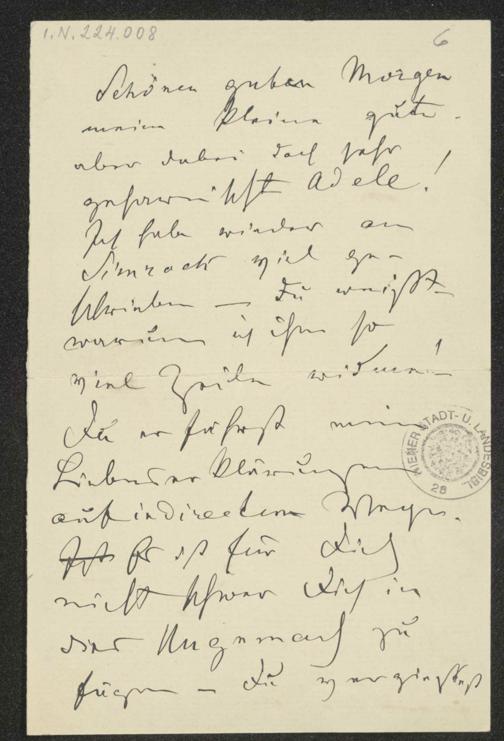 I.N. 224.008
6
Schönen guten Morgen
meine kleine gute
aber dabei doch sehr
Adele!
Ich habe wieder an
Simrock viel ge-
schrieben — Du weißt
warum ich ihm so
viel Zeilen widme! —
Du erfährst meine
Liebeserklärungen
auf indirectem Wege.
Es ist für Dich
nicht schwer Dich in
dies Ungemach zu
fügen — Du
WIENER STADT- U. LANDESBIBL.
28